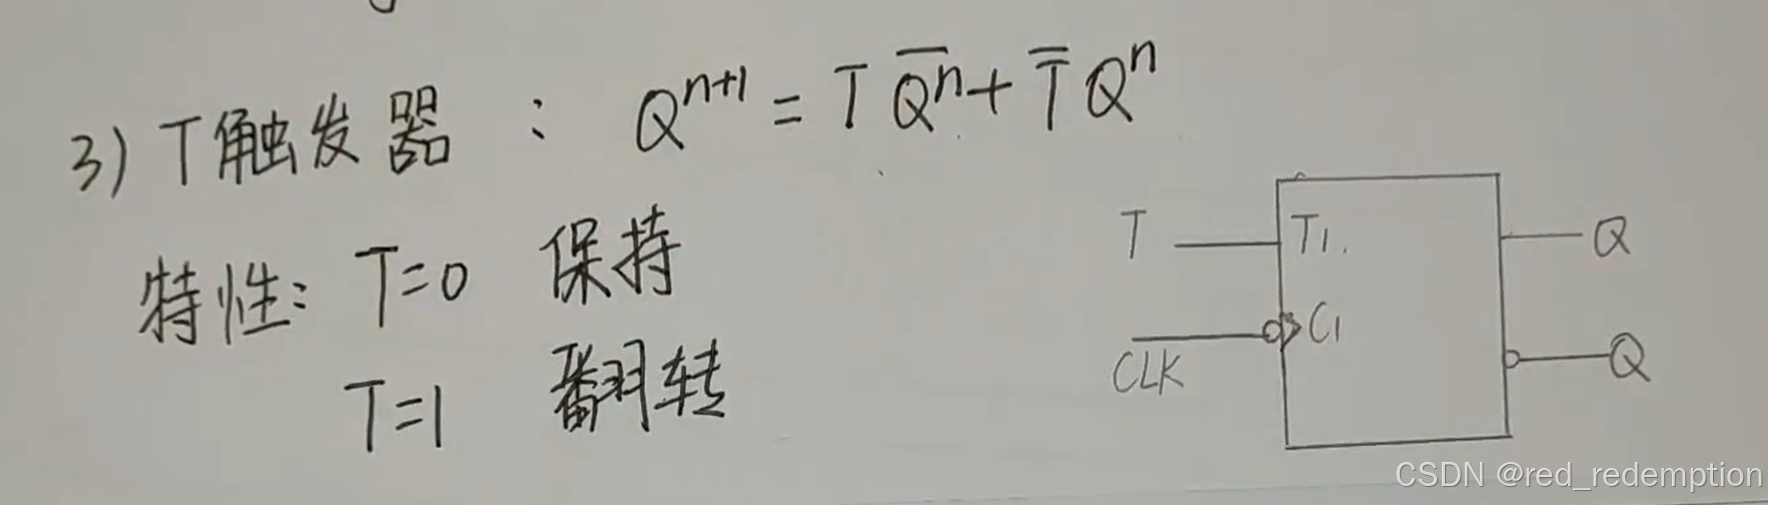 3) T触发器 : Qⁿ⁺¹ = T Q̅ⁿ̅ + T̅ Qⁿ
特性: T=0 保持
T=1 翻转
T T1. Q
CLK C1 Q
CSDN @red_redemption